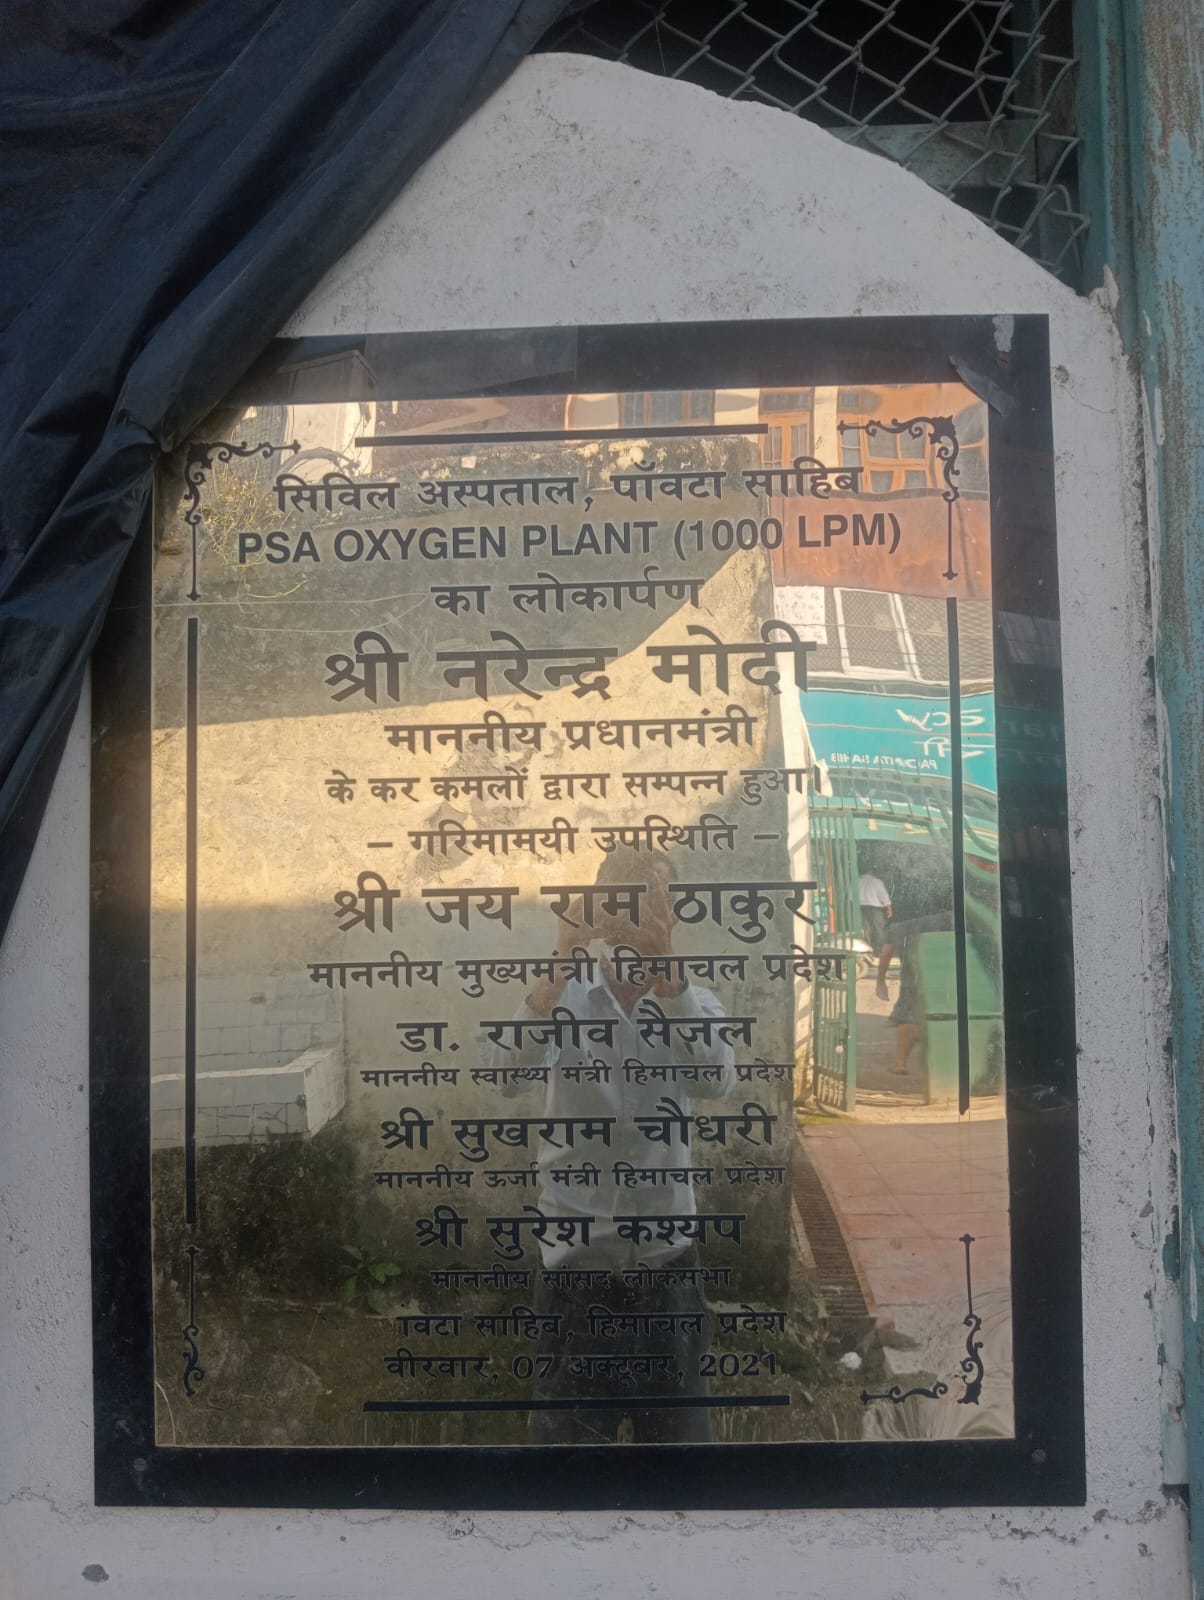 सिविल अस्पताल, पाँवटा साहिब
PSA OXYGEN PLANT (1000 LPM)
का लोकार्पण
श्री नरेन्द्र मोदी
माननीय प्रधानमंत्री
के कर कमलों द्वारा सम्पन्न हुआ।
– गरिमामयी उपस्थिति –
श्री जय राम ठाकुर
माननीय मुख्यमंत्री हिमाचल प्रदेश
डा. राजीव सैजल
माननीय स्वास्थ्य मंत्री हिमाचल प्रदेश
श्री सुखराम चौधरी
माननीय ऊर्जा मंत्री हिमाचल प्रदेश
श्री सुरेश कश्यप
माननीय सांसद लोकसभा
ांवटा साहिब, हिमाचल प्रदेश
वीरवार, 07 अक्टूबर, 2021